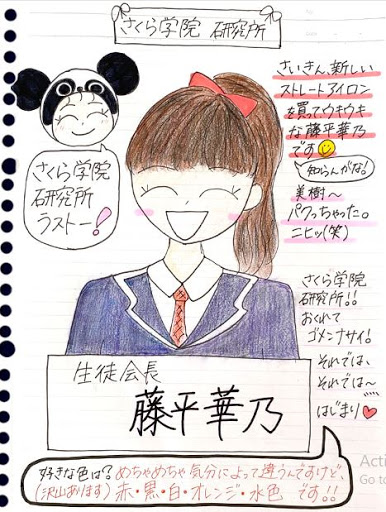 さくら学院 研究所
さいきん、新しい
ストレートアイロン
を買ってウキウキ
な藤平華乃
です
知らんがな!
美樹〜
パクっちゃった。
ニヒッ(笑)
さくら学院
研究所
ラストー!
さくら学院
研究所!!
おくれて
ゴメンナサイ!
それでは、
それでは〜
はじまり
生徒会長
藤平華乃
好きな色は?めちゃめちゃ気分によって違うんですけど、
(沢山あります)赤・黒・白・オレンジ・水色 です!!
Acti
Go to